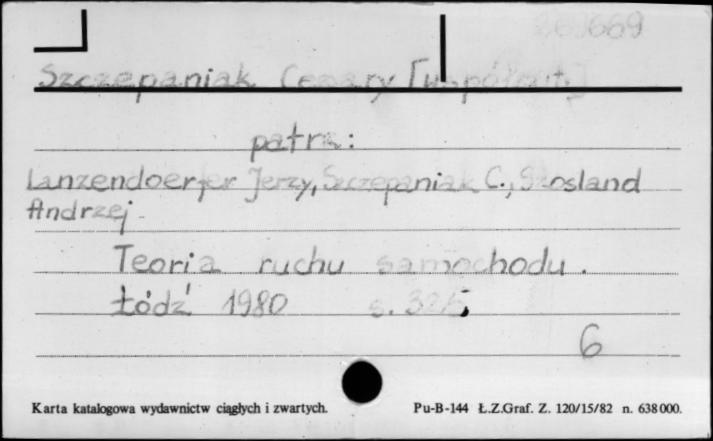 269669
Szczepaniak Cezary [współaut.]
patrz:
Lanzendoerfer Jerzy, Szczepaniak C., Szosland
Andrzej
Teoria ruchu samochodu.
Łódź 1980 s. 325
6
Karta katalogowa wydawnictw ciągłych i zwartych. Pu-B-144 Ł.Z.Graf. Z. 120/15/82 n. 638000.